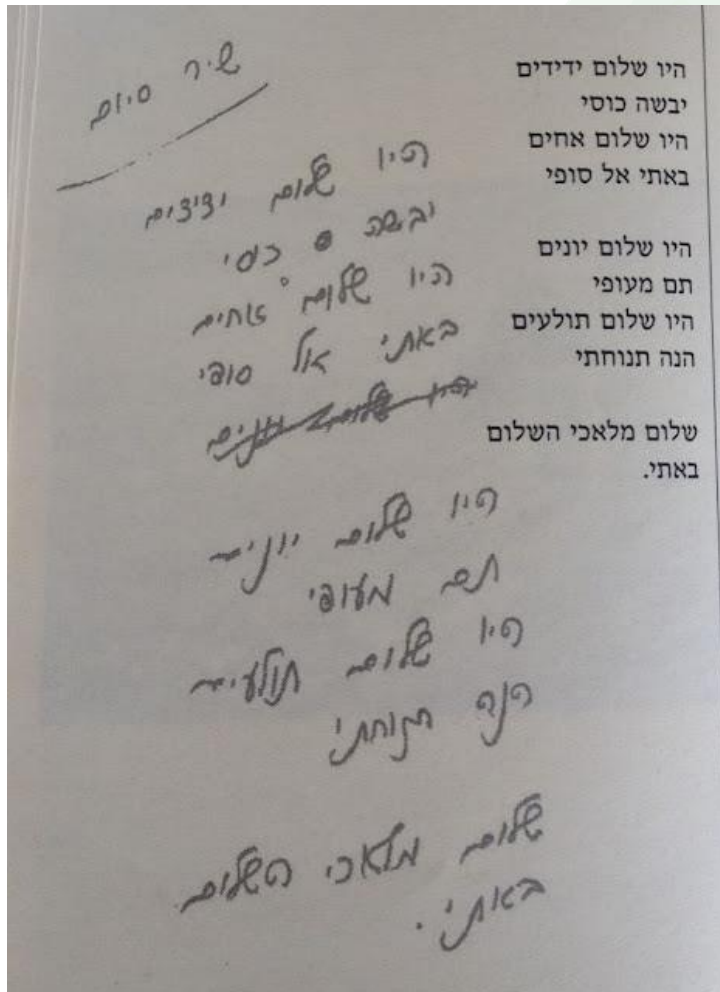 היו שלום ידידים
יבשה כוסי
היו שלום אחים
באתי אל סופי
היו שלום יונים
תם מעופי
היו שלום תולעים
הנה תנוחתי
שלום מלאכי השלום
באתי.
שיר סיום
היו שלום ידידים
יבשה כוסי
היו שלום אחים
באתי אל סופי
היו שלום יונים
היו שלום יונים
תם מעופי
היו שלום תולעים
הנה תנוחתי
שלום מלאכי השלום
באתי.